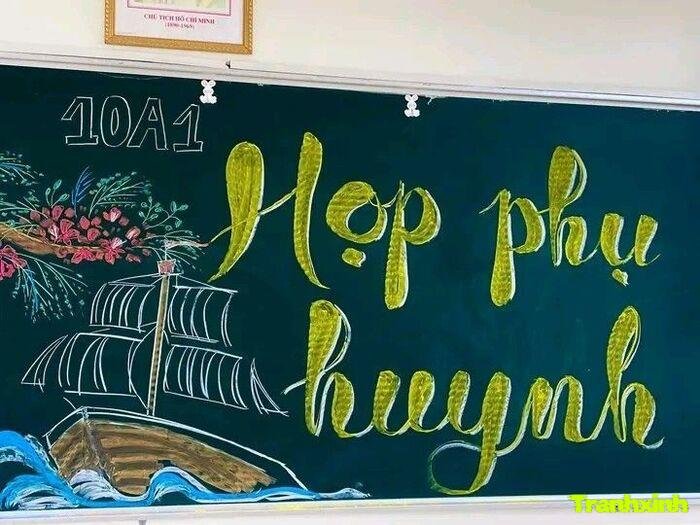 CHỦ TỊCH HỒ CHÍ MINH
(1890-1969)
10A1
Họp phụ
huynh
Tranhxinh